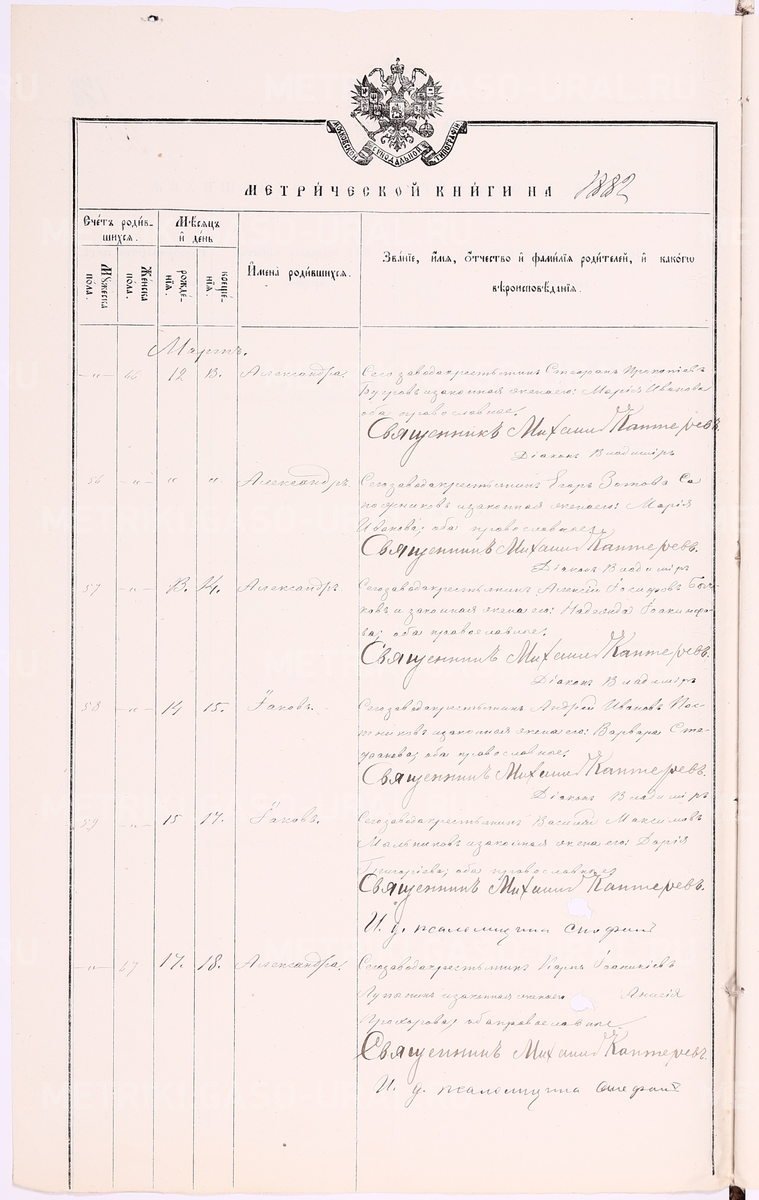 МОСКОВСКОЙ СѴНОДАЛЬНОЙ ТИПОГРАФІИ
МЕТРИ́ЧЕСКОЙ КНИ́ГИ НА 1882
Сче́тъ роди́в-
шихся.
Мꙋжеска
по́ла.
Же́нска
по́ла.
Мѣ́сяцъ
и҆ де́нь
рожде-
нїѧ.
креще-
нїѧ.
И҆мена̀ роди́вшихся.
Зва́нїе, и҆́мя, ѻ҆́тчество и҆ фами́лїя роди́телей, и҆ како́гѡ
вѣроисповѣ́данїя.
Мартъ.
—„— 66 12 13. Александра. Сегозаводакрестьянинъ Стефанъ Прокопіевъ
Бугровъ изаконная женаего: Марія Иванова
оба православные.
Священникъ Михаилъ Каптеревъ.
Діаконъ Владиміръ
56 —„— „ „ Александръ. Сегозаводакрестьянинъ Егоръ Зотова Са
пожниковъ изаконная женаего: Марія
Иванова; оба православные.
Священникъ Михаилъ Каптеревъ.
Діаконъ Владиміръ
57 —„— 13. 14. Александръ Сегозаводакрестьянинъ Алексѣй Іосифовъ
и законная женаего: Надежда Іоакимо-
ва; оба православные.
Священникъ Михаилъ Каптеревъ.
Діаконъ Владиміръ
58 —„— 14 15. Іаковъ. Сегозаводакрестьянинъ Андрей Ивановъ Пос-
тниковъ изаконная женаего: Варвара Сте-
фанова; оба православные.
Священникъ Михаилъ Каптеревъ.
Діаконъ Владиміръ
59 —„— 15 17. Іаковъ. Сегозаводакрестьянинъ Василій Максимовъ
Мальниковъ изаконная женаего: Дарія
Григоріева; оба православные
Священникъ Михаилъ Каптеревъ.
И. д. псаломщика Стефанъ
—„— 67 17. 18. Александра. Сегозаводакрестьянинъ Карпъ Іоанникіевъ
Лупанинъ изаконная женаего Анисія
Прохорова; оба православные
Священникъ Михаилъ Каптеревъ.
И. д. псаломщика Стефанъ